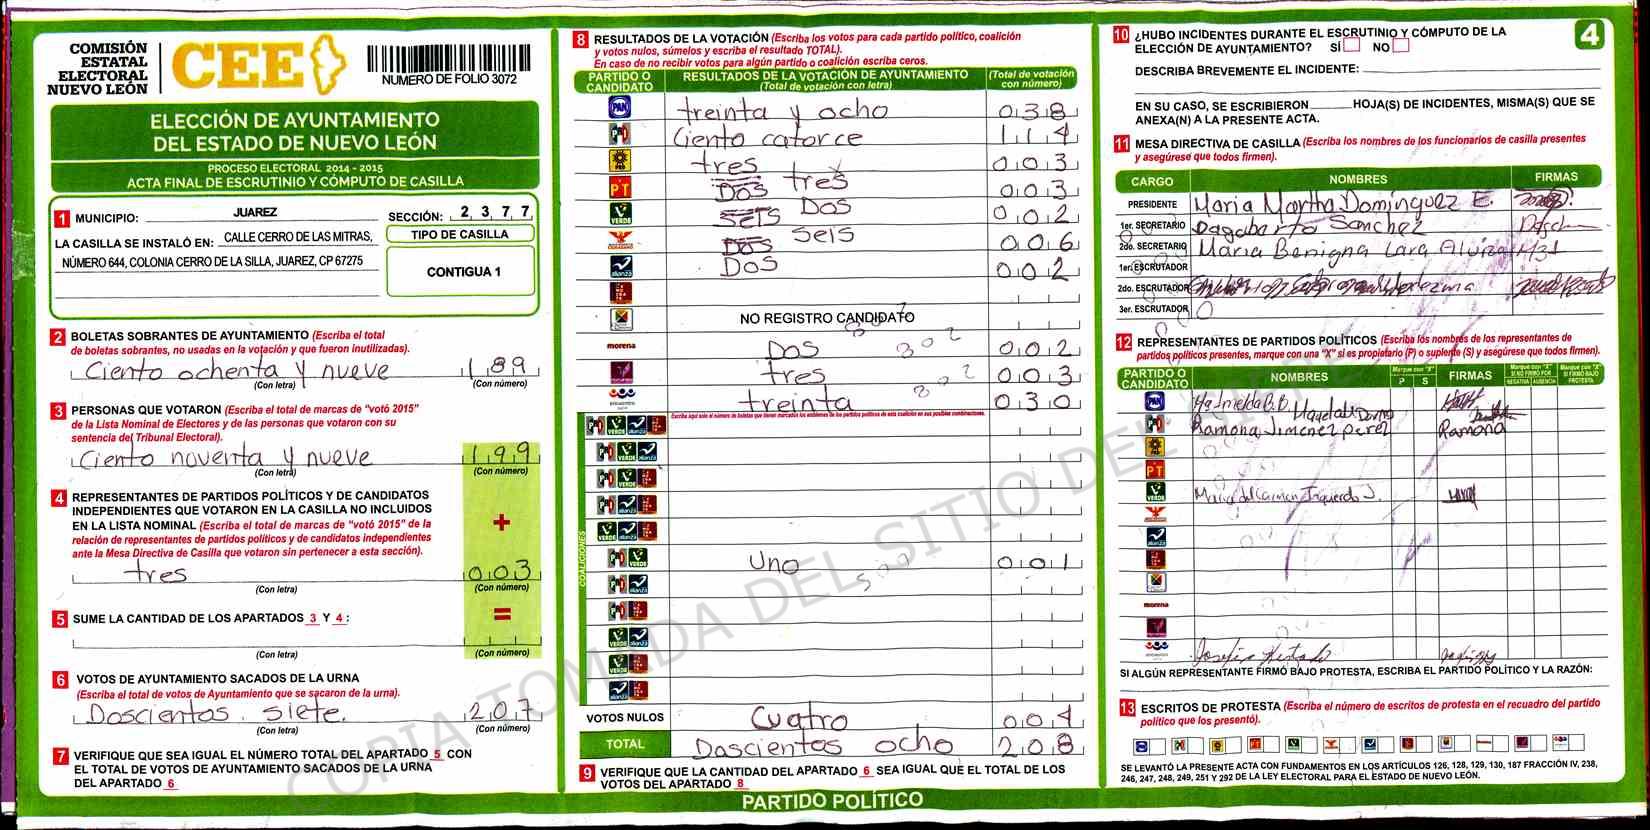 COMISIÓN
ESTATAL
ELECTORAL
NUEVO LEÓN
CEE
NUMERO DE FOLIO 3072
ELECCIÓN DE AYUNTAMIENTO
DEL ESTADO DE NUEVO LEÓN
PROCESO ELECTORAL 2014 - 2015
ACTA FINAL DE ESCRUTINIO Y CÓMPUTO DE CASILLA
1 MUNICIPIO: JUAREZ SECCIÓN: 2, 3, 7, 7
LA CASILLA SE INSTALÓ EN: CALLE CERRO DE LAS MITRAS,
NÚMERO 644, COLONIA CERRO DE LA SILLA, JUAREZ, CP 67275
TIPO DE CASILLA
CONTIGUA 1
2 BOLETAS SOBRANTES DE AYUNTAMIENTO (Escriba el total
de boletas sobrantes, no usadas en la votación y que fueron inutilizadas).
Ciento ochenta y nueve 189
(Con letra) (Con número)
3 PERSONAS QUE VOTARON (Escriba el total de marcas de “votó 2015”
de la Lista Nominal de Electores y de las personas que votaron con su
sentencia del Tribunal Electoral).
Ciento noventa y nueve 199
(Con letra) (Con número)
4 REPRESENTANTES DE PARTIDOS POLÍTICOS Y DE CANDIDATOS
INDEPENDIENTES QUE VOTARON EN LA CASILLA NO INCLUIDOS
EN LA LISTA NOMINAL (Escriba el total de marcas de “votó 2015” de la
relación de representantes de partidos políticos y de candidatos independientes
ante la Mesa Directiva de Casilla que votaron sin pertenecer a esta sección).
+
tres 003
(Con letra) (Con número)
=
5 SUME LA CANTIDAD DE LOS APARTADOS 3 Y 4:
(Con letra) (Con número)
6 VOTOS DE AYUNTAMIENTO SACADOS DE LA URNA
(Escriba el total de votos de Ayuntamiento que se sacaron de la urna).
Doscientos siete 207
(Con letra) (Con número)
7 VERIFIQUE QUE SEA IGUAL EL NÚMERO TOTAL DEL APARTADO 5 CON
EL TOTAL DE VOTOS DE AYUNTAMIENTO SACADOS DE LA URNA
DEL APARTADO 6
8 RESULTADOS DE LA VOTACIÓN (Escriba los votos para cada partido político, coalición
y votos nulos, súmelos y escriba el resultado TOTAL).
En caso de no recibir votos para algún partido o coalición escriba ceros.
PARTIDO O CANDIDATO RESULTADOS DE LA VOTACIÓN DE AYUNTAMIENTO (Total de votación con letra) (Total de votación con número)
PAN treinta y ocho 038
PRI Ciento catorce 114
PRD tres 003
PT Dos tres 003
VERDE Seis Dos 002
Dos Seis 006
alianza Dos 002
NO REGISTRO CANDIDATO
morena Dos 002
tres 003
treinta 030
Escriba aquí solo el número de boletas que tienen marcados los emblemas de los partidos políticos de esta coalición en sus posibles combinaciones.
COALICIONES
PRI VERDE Uno 001
VOTOS NULOS Cuatro 004
TOTAL Doscientos ocho 208
9 VERIFIQUE QUE LA CANTIDAD DEL APARTADO 6 SEA IGUAL QUE EL TOTAL DE LOS
VOTOS DEL APARTADO 8
10 ¿HUBO INCIDENTES DURANTE EL ESCRUTINIO Y CÓMPUTO DE LA
ELECCIÓN DE AYUNTAMIENTO? SÍ NO
4
DESCRIBA BREVEMENTE EL INCIDENTE:
EN SU CASO, SE ESCRIBIERON HOJA(S) DE INCIDENTES, MISMA(S) QUE SE
ANEXA(N) A LA PRESENTE ACTA.
11 MESA DIRECTIVA DE CASILLA (Escriba los nombres de los funcionarios de casilla presentes
y asegúrese que todos firmen).
CARGO NOMBRES FIRMAS
PRESIDENTE Maria Martha Dominguez E.
1er. SECRETARIO Dagoberto Sanchez
2do. SECRETARIO Maria Benigna Lara
1er. ESCRUTADOR
2do. ESCRUTADOR
3er. ESCRUTADOR
12 REPRESENTANTES DE PARTIDOS POLÍTICOS (Escriba los nombres de los representantes de
partidos políticos presentes, marque con una “X” si es propietario (P) o suplente (S) y asegúrese que todos firmen).
PARTIDO O CANDIDATO NOMBRES Marque con “X” P S FIRMAS Marque con “X” SI NO FIRMÓ POR NEGATIVA AUSENCIA Marque con “X” SI FIRMÓ BAJO PROTESTA
PAN Ma Imelda B.B
PRI Ramona Jimenez perez Ramona
PRD
PT
VERDE Maria del Carmen Izquierdo J.
alianza
morena
Josefina
SI ALGÚN REPRESENTANTE FIRMÓ BAJO PROTESTA, ESCRIBA EL PARTIDO POLÍTICO Y LA RAZÓN:
13 ESCRITOS DE PROTESTA (Escriba el número de escritos de protesta en el recuadro del partido
político que los presentó).
SE LEVANTÓ LA PRESENTE ACTA CON FUNDAMENTOS EN LOS ARTÍCULOS 126, 128, 129, 130, 187 FRACCIÓN IV, 238,
246, 247, 248, 249, 251 Y 292 DE LA LEY ELECTORAL PARA EL ESTADO DE NUEVO LEÓN.
PARTIDO POLÍTICO
COPIA TOMADA DEL SITIO DEL